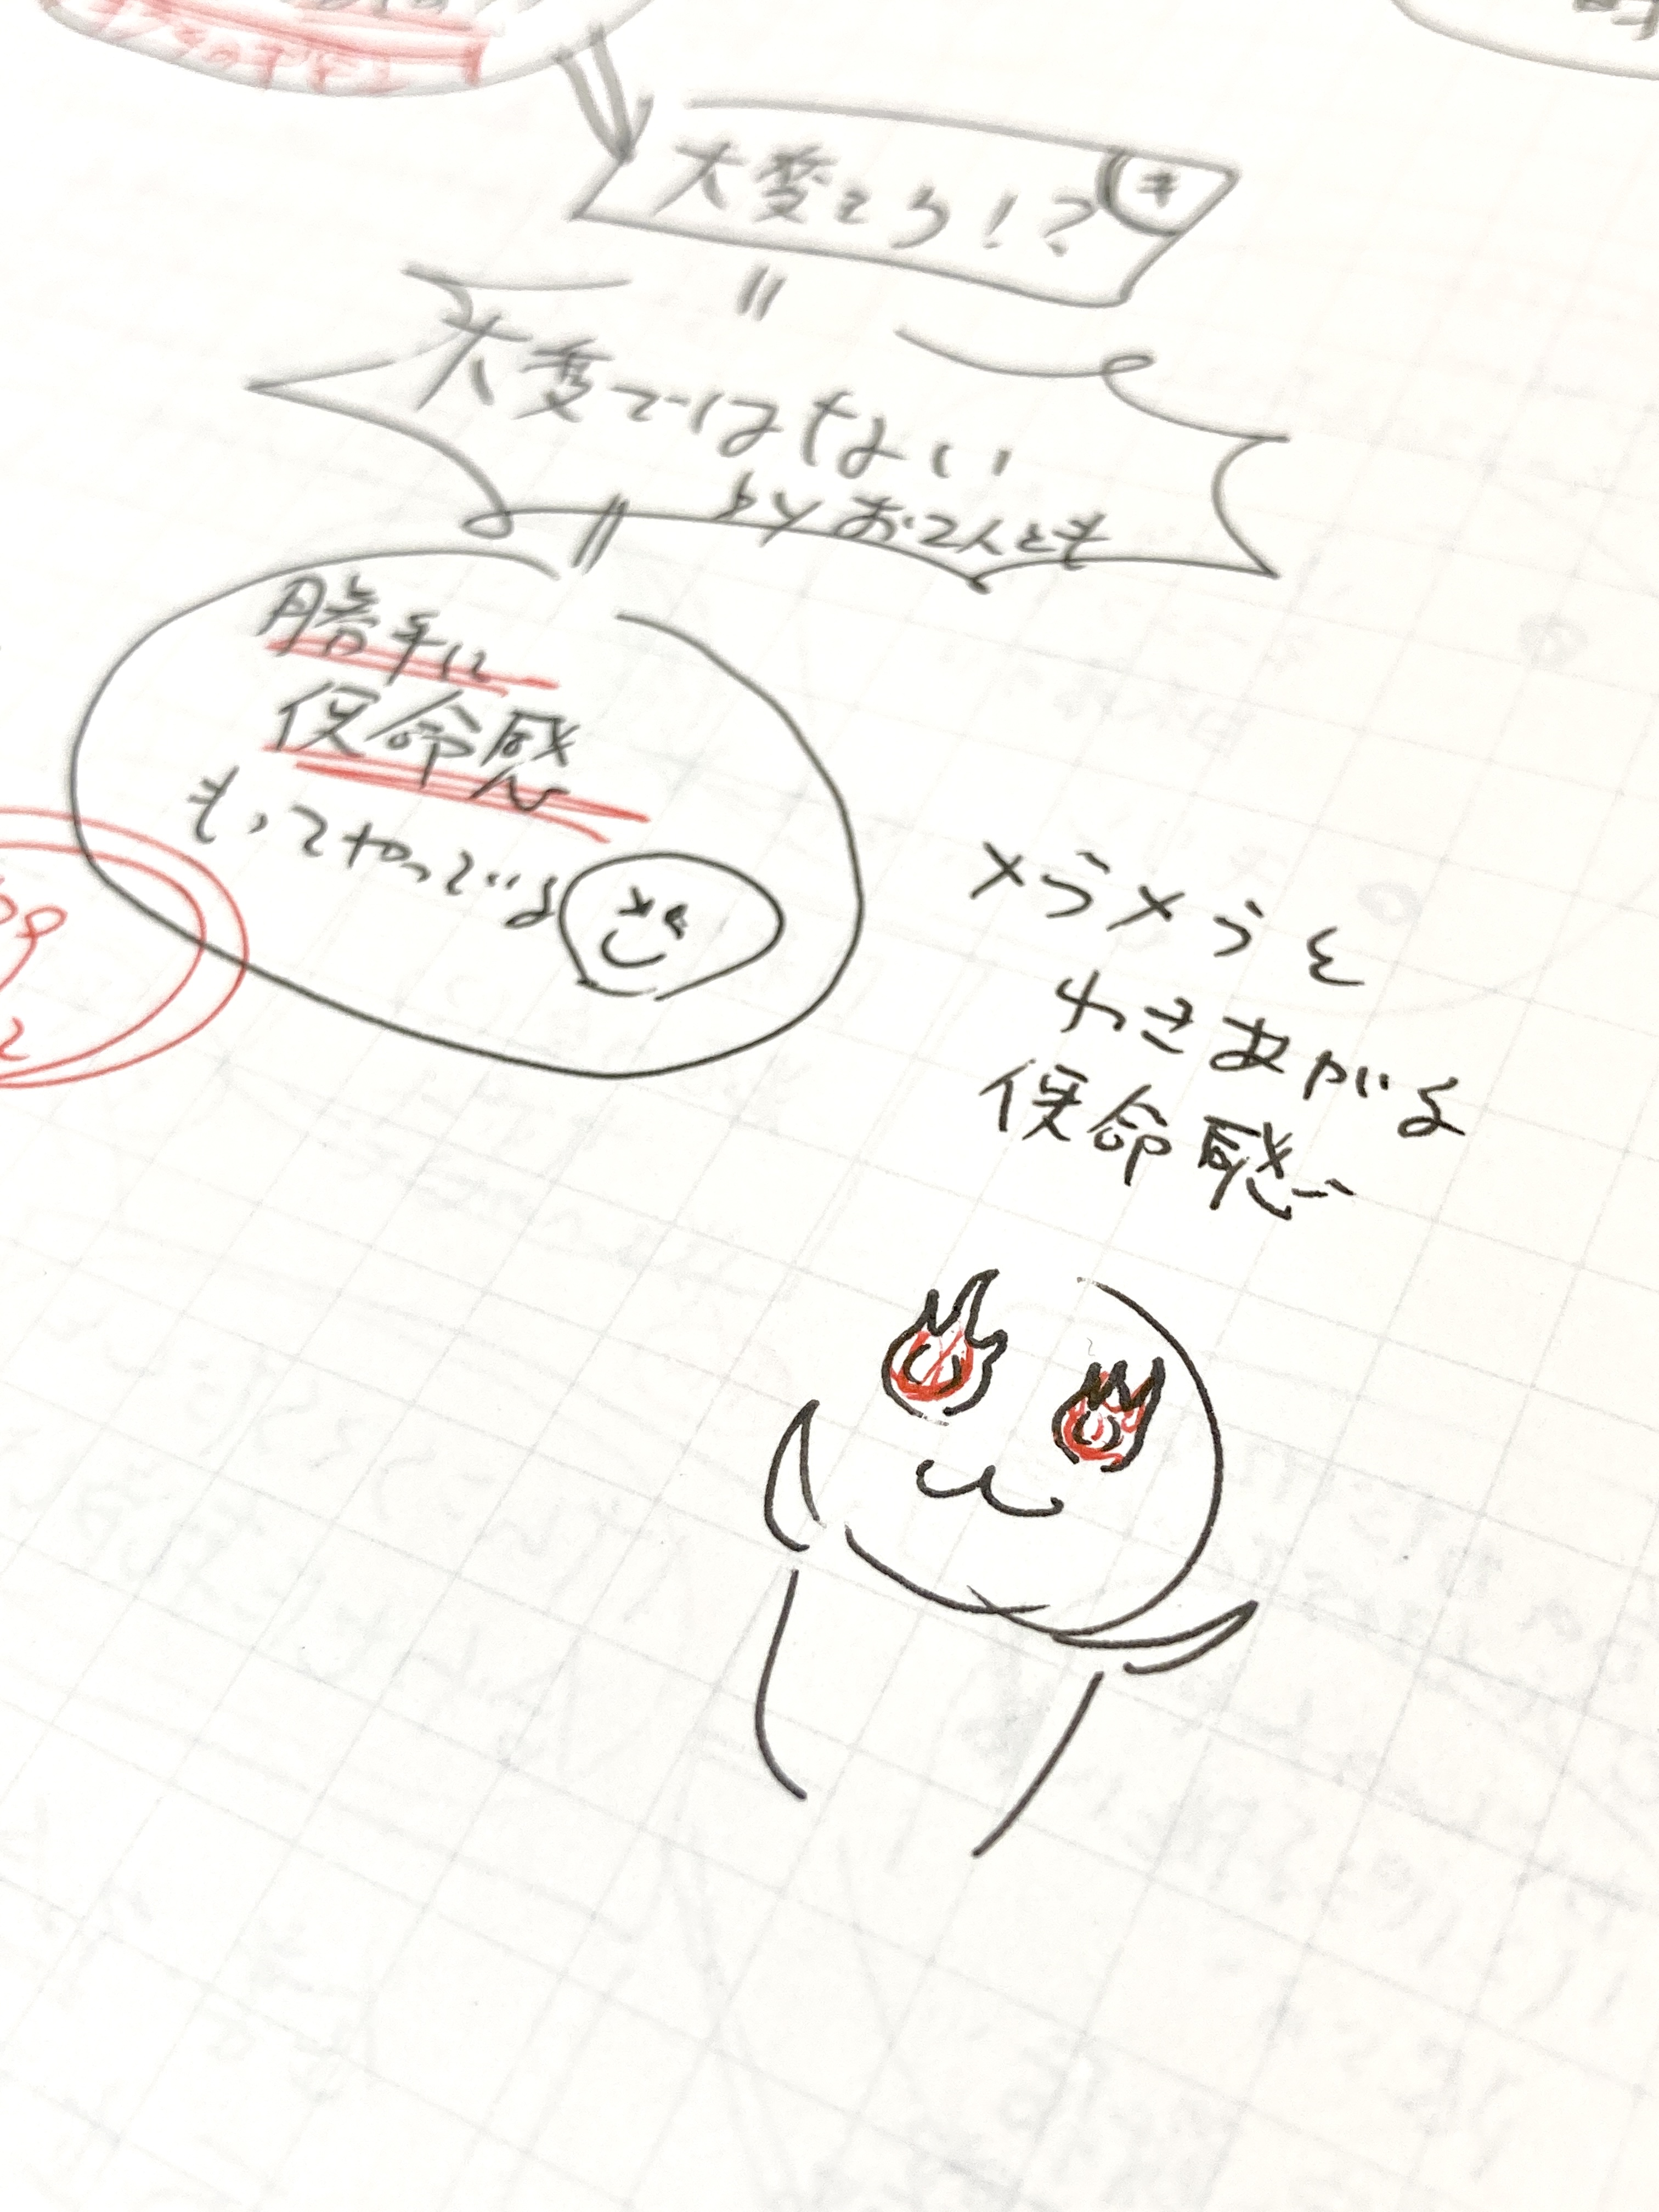 大変そう！？
大変ではない
by お2人とも
勝手に
使命感
もってやっている
メラメラと
わきあがる
使命感